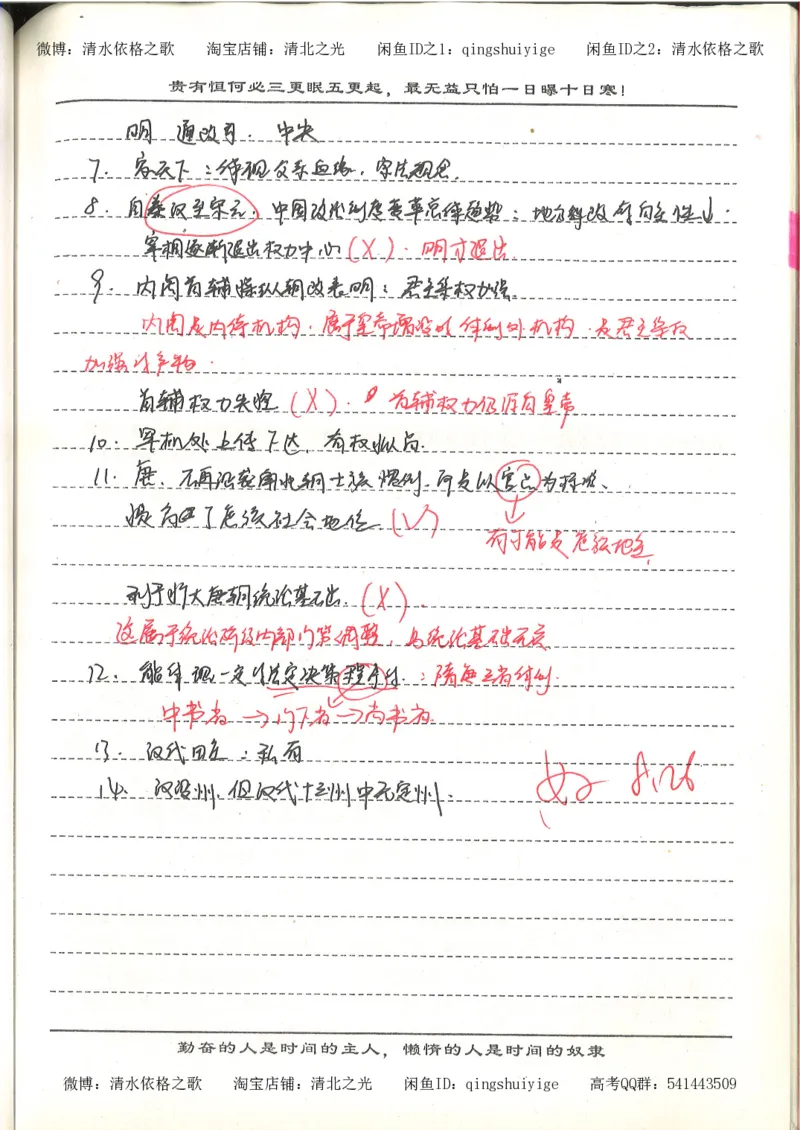 微博：清水依格之歌 淘宝店铺：清北之光 闲鱼ID之1：qingshuiyige 闲鱼ID之2：清水依格之歌
贵有恒何必三更眠五更起，最无益只怕一日曝十日寒！
明 通政司：中央
7. 家天下：体现父系血缘，宗法观念.
8. 自秦汉至宋元，中国政治制度变革总体趋势：地方行政自主性↓.
宰相逐渐退出权力中心(X). 明才退出
9. 内阁首辅操纵朝政表明：君主集权加强
内阁是内侍机构，属于皇帝增设的体制外机构，是君主集权
加强的产物.
首辅权力失控(X). 首辅权力仍源自皇帝
10. 军机处上传下达，有权
11. 唐，不再沿袭南北朝士族惯例，而是以官品为标准、
提高了庶族社会地位(√)
有可能是庶族地主
利于扩大唐朝统治基础(X).
这属于统治阶级内部的策调整，与统治基础无关
12. 能体现一定的法定决策程序的：隋唐三省体制.
中书省→门下省→尚书省
13. 汉代田庄：私有
14. 汉设州，但汉代十三州中无定州.
好 8.26
勤奋的人是时间的主人，懒惰的人是时间的奴隶
微博：清水依格之歌 淘宝店铺：清北之光 闲鱼ID：qingshuiyige 高考QQ群：541443509